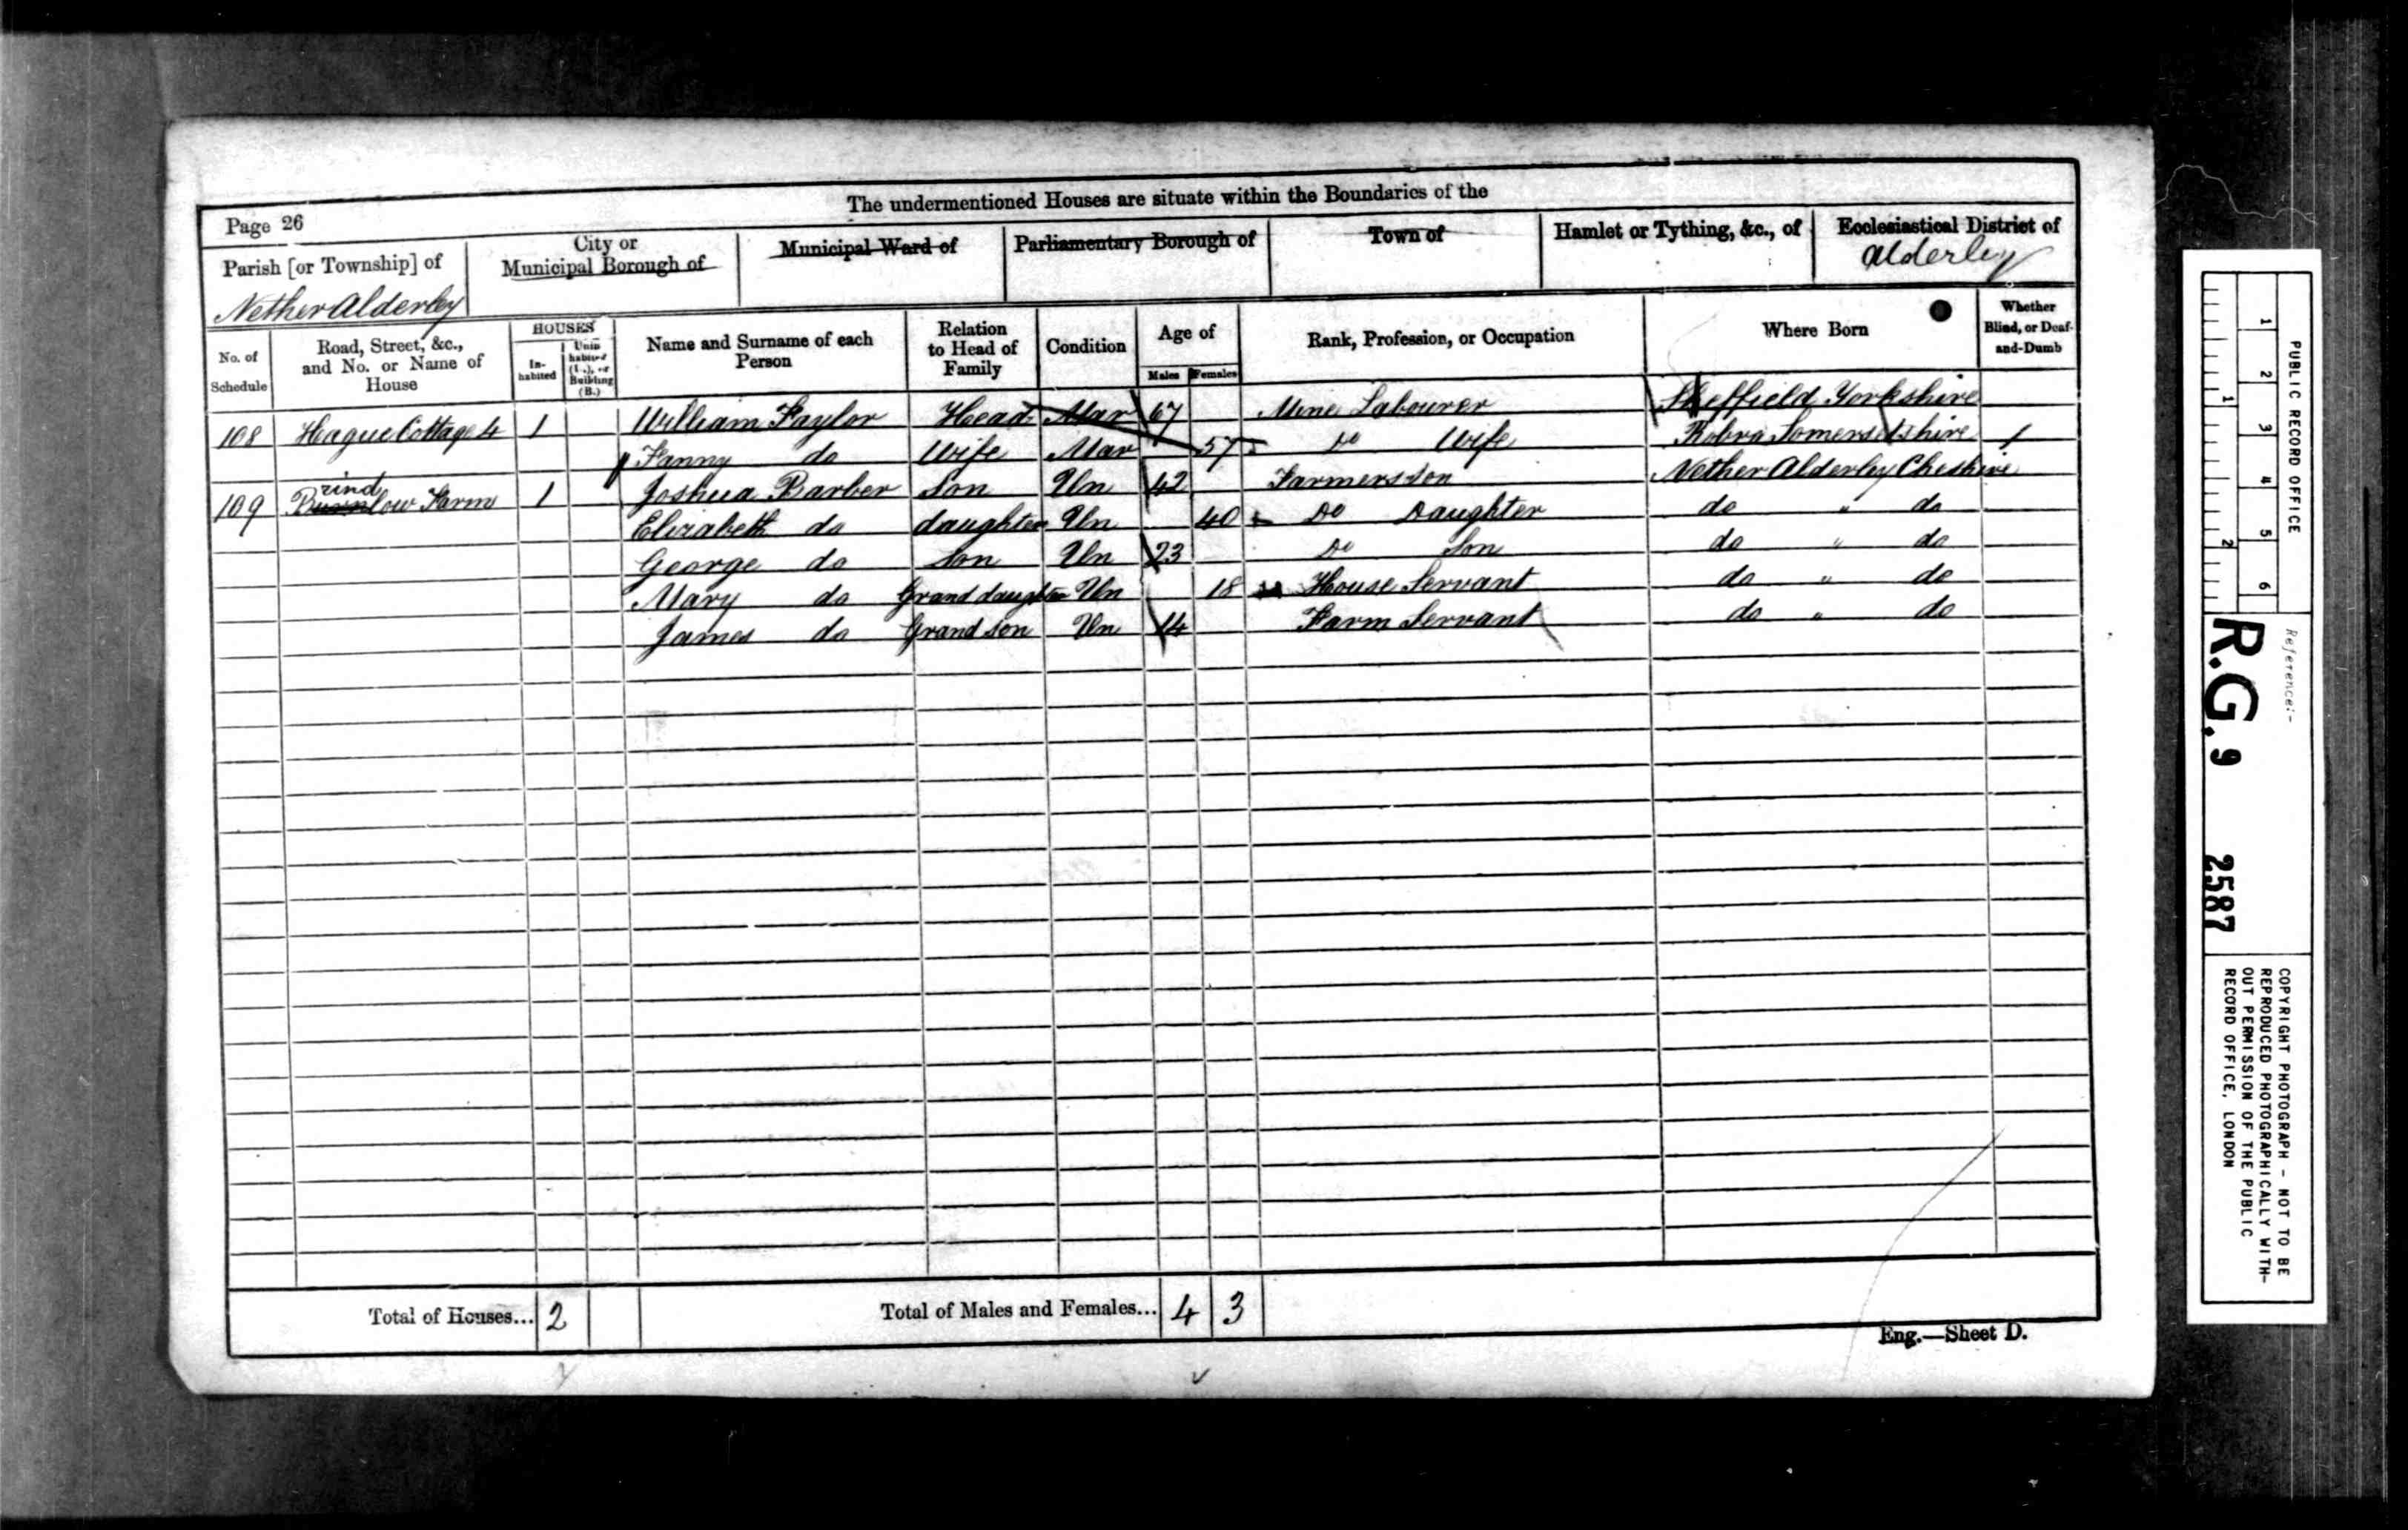 The undermentioned Houses are situate within the Boundaries of the
Page 26
Parish [or Township] of
Nether Alderley
City or
Municipal Borough of
Municipal Ward of
Parliamentary Borough of
Town of
Hamlet or Tything, &c., of
Ecclesiastical District of
Alderley
No. of
Schedule
Road, Street, &c.,
and No. or Name of
House
HOUSES
In-
habited
Unin
habited
(U.), or
Building
(B.)
Name and Surname of each
Person
Relation
to Head of
Family
Condition
Age of
Males Females
Rank, Profession, or Occupation
Where Born
Whether
Blind, or Deaf-
and-Dumb
108 Hague Cottage 4 1 William Taylor Head Mar 67 Mine Labourer Sheffield Yorkshire
Fanny do Wife Mar 57 Do Wife Somersetshire
rind
109 Burnlow Farm 1 Joshua Barber Son Un 42 Farmers Son Nether Alderley Cheshire
Elizabeth do daughter Un 40 Do Daughter do " do
George do Son Un 23 Do Son do " do
Mary do Grand daughter Un 18 House Servant do " do
James do Grand son Un 14 Farm Servant do " do
Total of Houses... 2
Total of Males and Females... 4 3
Eng.—Sheet D.
PUBLIC RECORD OFFICE
1 2 3 4 5 6
1 2
Reference:-
R.G. 9 2587
COPYRIGHT PHOTOGRAPH - NOT TO BE
REPRODUCED PHOTOGRAPHICALLY WITH-
OUT PERMISSION OF THE PUBLIC
RECORD OFFICE, LONDON